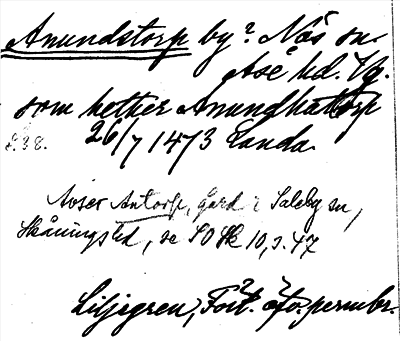 Anundstorp by? Näs sn.
Åse hd. Vg.
som hether Anundhattorp
s. 38. 26/7 1473 Landa.
Avser Antorp, gård i Saleby sn,
Skånings hd, se SOSk 10, s. 47
Liljegren, Fört. öfv. permbr.